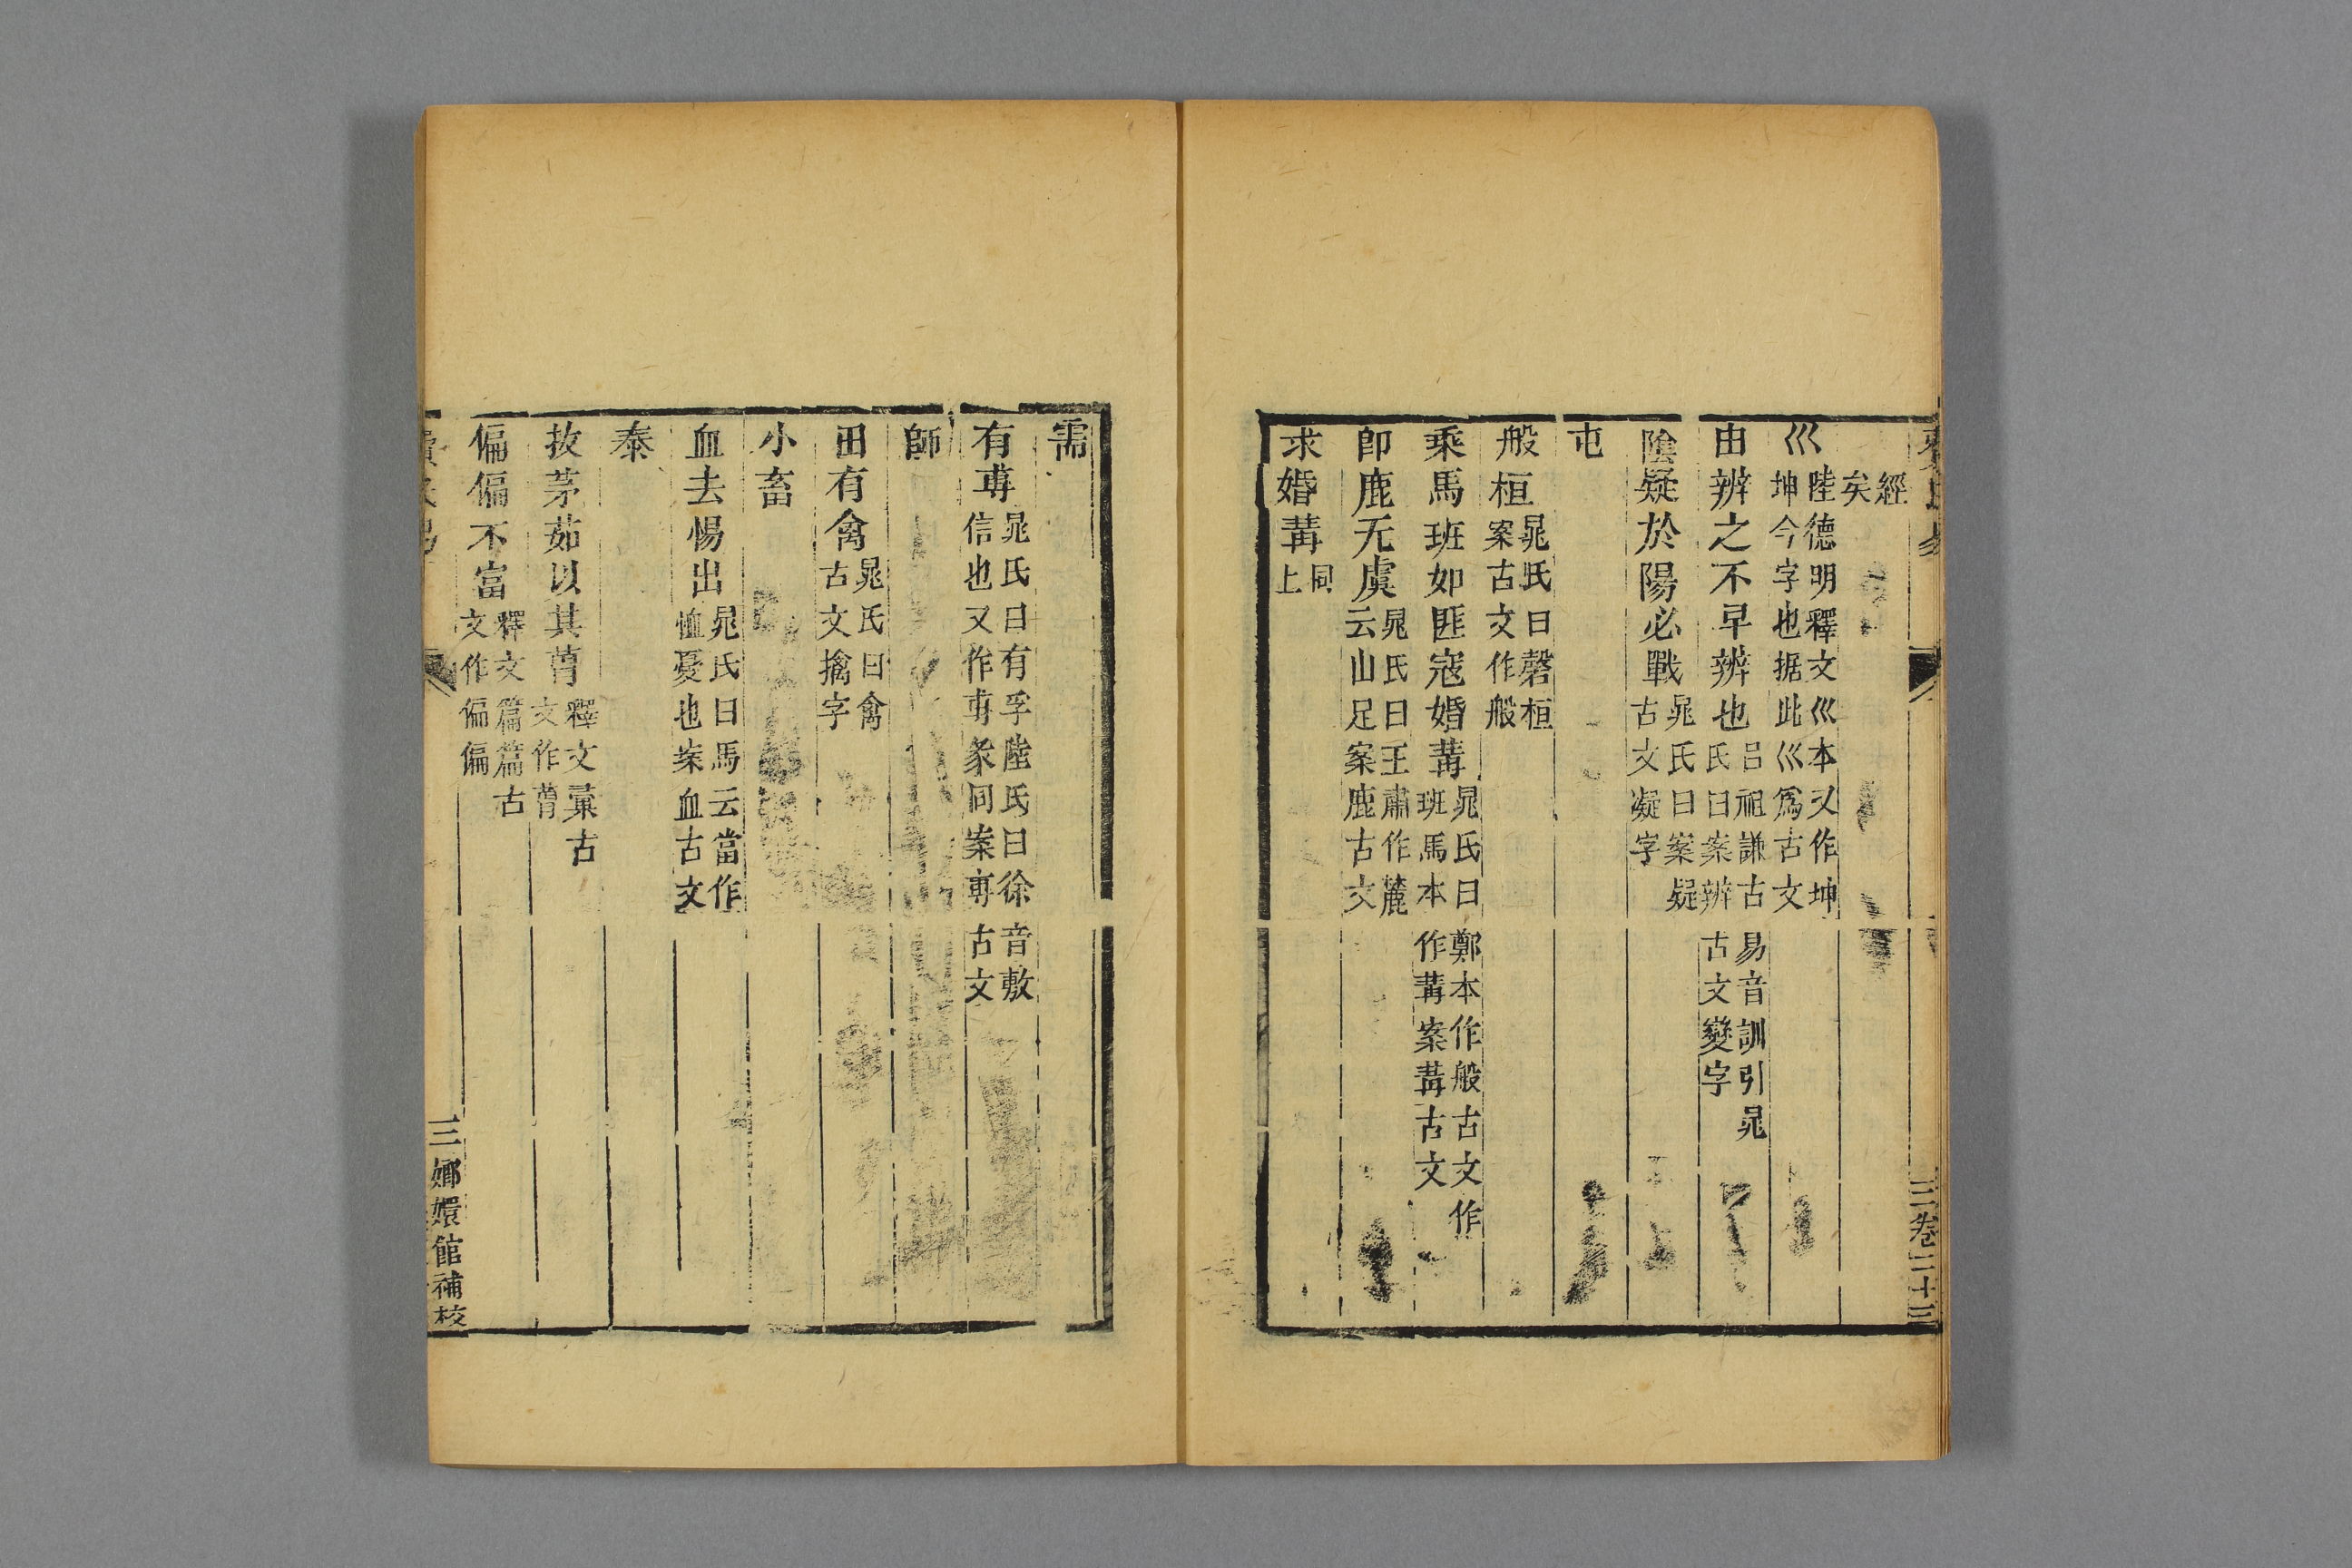 經
矣
巛陸德明釋文巛本又作坤
坤今字也据此巛爲古文
由辨之不早辨也呂祖謙古易音訓引晁
氏曰案辨古文變字
陰疑於陽必戰晁氏曰案疑
古文凝字
屯
般桓晁氏曰磬桓
案古文作般
乘馬班如匪寇婚冓晁氏曰鄭本作般古文作
班馬本作冓案冓古文
卽鹿无虞晁氏曰王肅作麓
云山足案鹿古文
求婚冓同
上
三
卷二十三
需
有旉晁氏曰有孚陸氏曰徐音敷
信也又作旉彖同案旉古文
師
田有禽晁氏曰禽
古文擒字
小畜
血去惕出晁氏曰馬云當作
恤憂也案血古文
泰
拔茅茹以其𦳊釋文彙古
文作𦳊
偏偏不富釋文篇篇古
文作偏偏
三
嫏嬛館補校